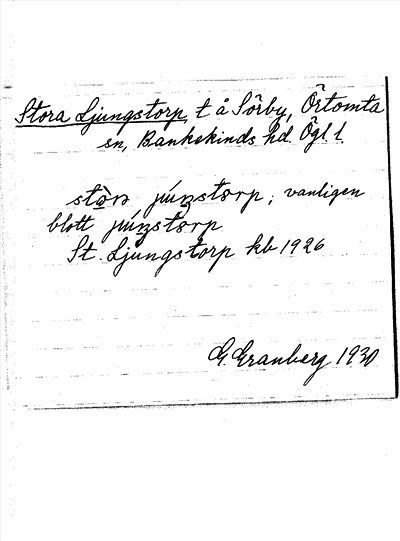 Stora Ljungstorp, t å Sörby, Örtomta
sn, Bankekinds hd. Ögl l.
vanligen
blott
St. Ljungstorp kb 1926
G. Granberg 1930